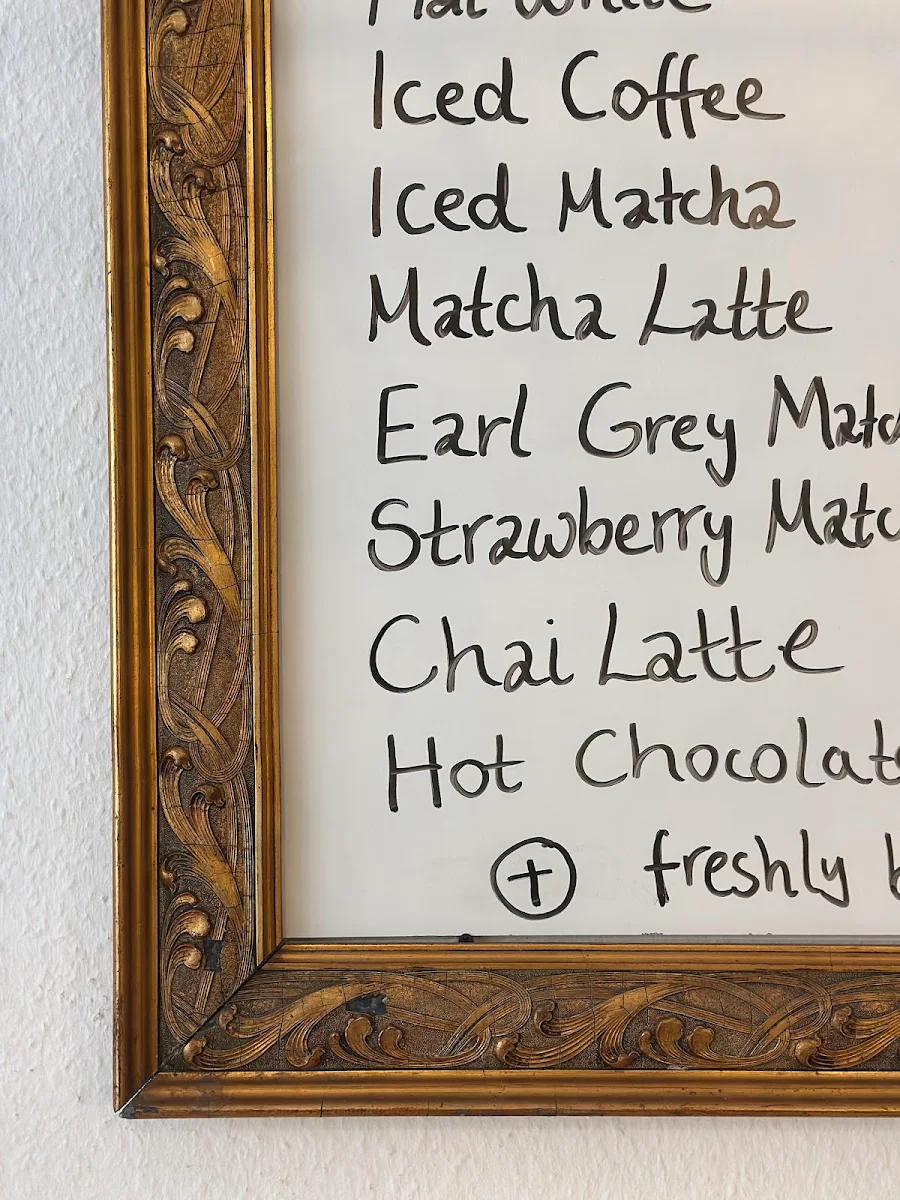 Flat White
Iced Coffee
Iced Matcha
Matcha Latte
Earl Grey Matc
Strawberry Matc
Chai Latte
Hot Chocolat
⊕ freshly b